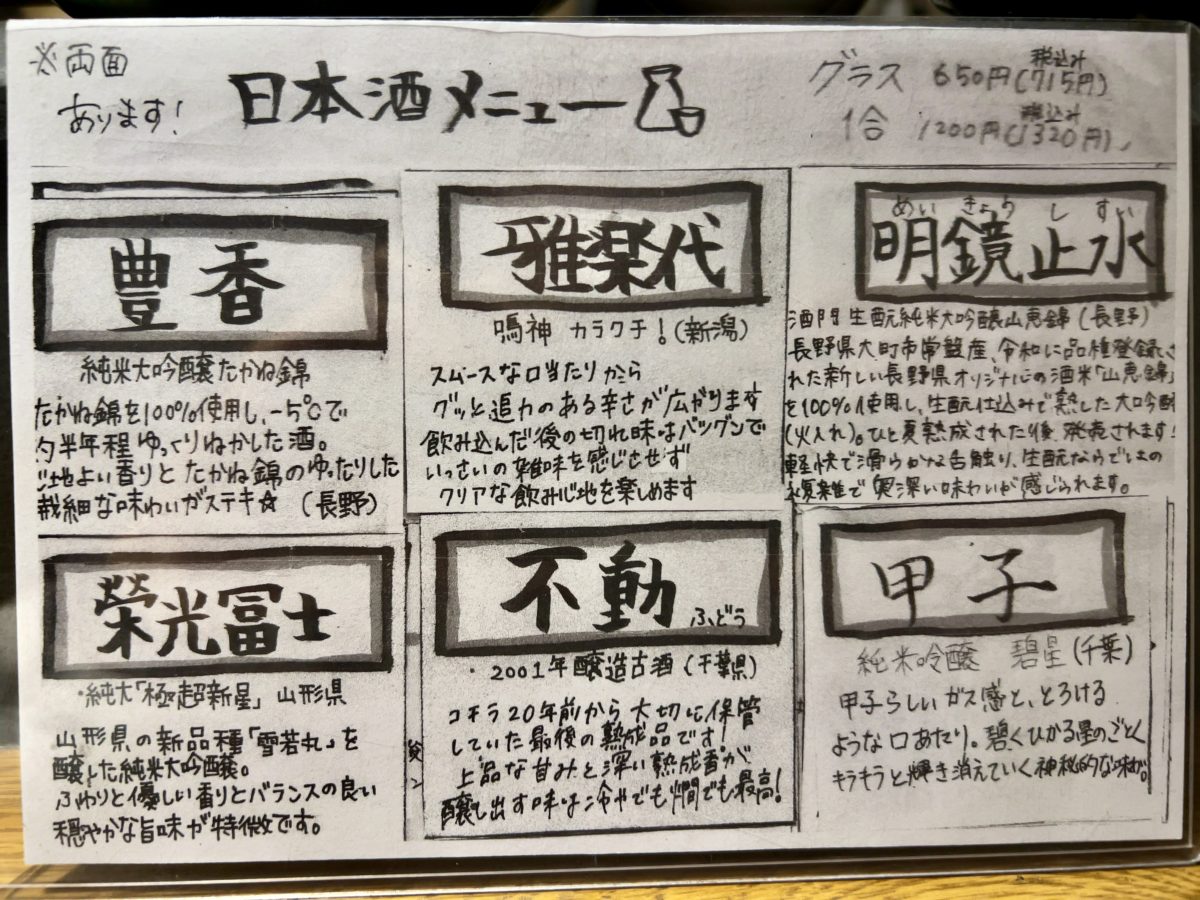 ※両面
あります!
日本酒メニュー
グラス 650円(税込み715円)
1合 1200円(税込み1320円)
豊香
純米大吟醸たかね錦
たかね錦を100%使用し、-5℃で
約半年程ゆっくりねかした酒。
心地よい香りとたかね錦のゆったりした
繊細な味わいがステキ☆ (長野)
雅楽代
鳴神 カラクチ!(新潟)
スムースな口当たりから
グッと迫力のある辛さが広がります
飲み込んだ後の切れ味はバツグンで
いっさいの雑味を感じさせず
クリアな飲み心地を楽しめます
めい きょう し すい
明鏡止水
酒門 生酛純米大吟醸山恵錦(長野)
長野県大町市常盤産、令和に品種登録さ
れた新しい長野県オリジナルの酒米「山恵錦」
を100%使用し、生酛仕込みで熟した大吟醸
(火入れ)。ひと夏熟成された後、発売されます!
軽快で滑らかな舌触り、生酛ならではの
複雑で奥深い味わいが感じられます。
榮光冨士
・純大「極超新星」 山形県
山形県の新品種「雪若丸」を
醸した純米大吟醸。
ふわりと優しい香りとバランスの良い
穏やかな旨味が特徴です。
不動
ふどう
・2001年醸造古酒(千葉県)
コチラ20年前から大切に保管
していた最後の熟成品です!
上品な甘みと深い熟成香が
醸し出す味は冷やでも燗でも最高!
甲子
純米吟醸 碧星(千葉)
甲子らしいガス感と、とろける
ような口あたり。碧くひかる星のごとく
キラキラと輝き消えていく神秘的な味わい。